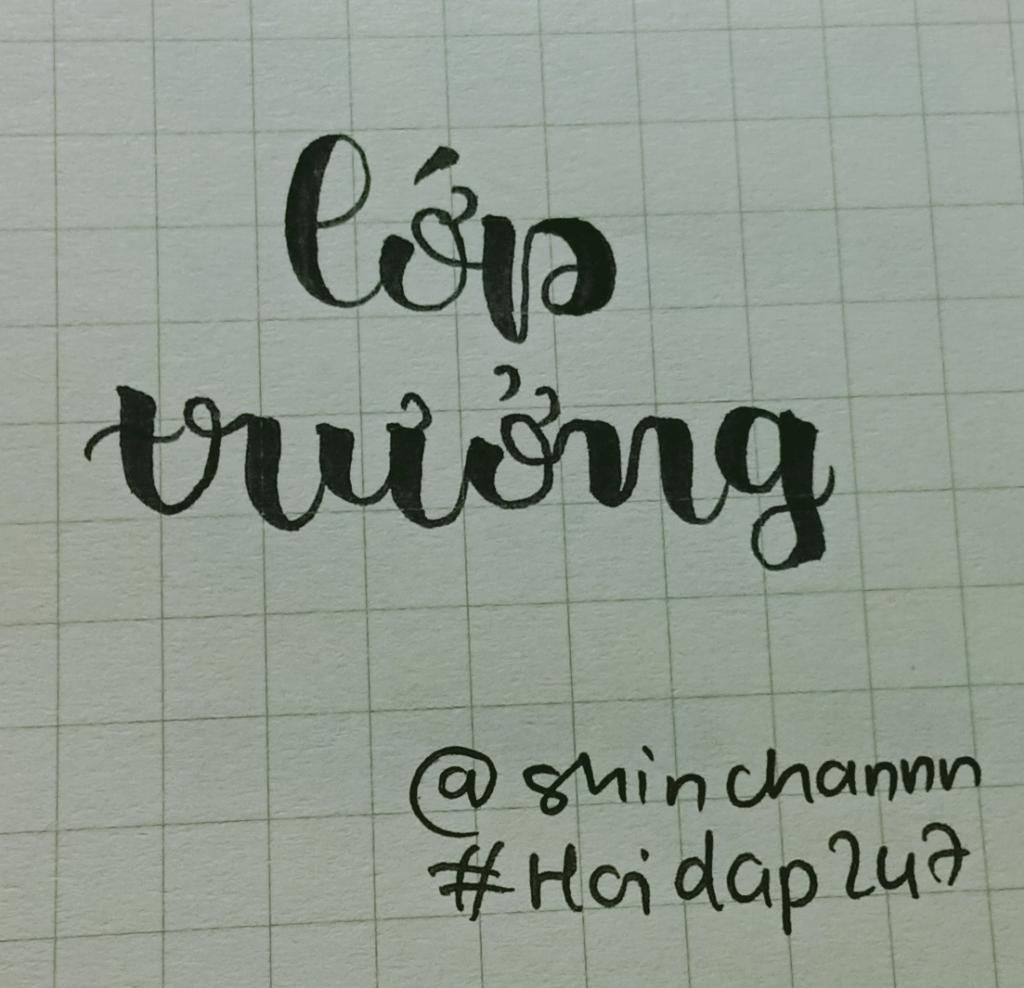 lớp
trưởng
@shinchannn
#Hoidap247